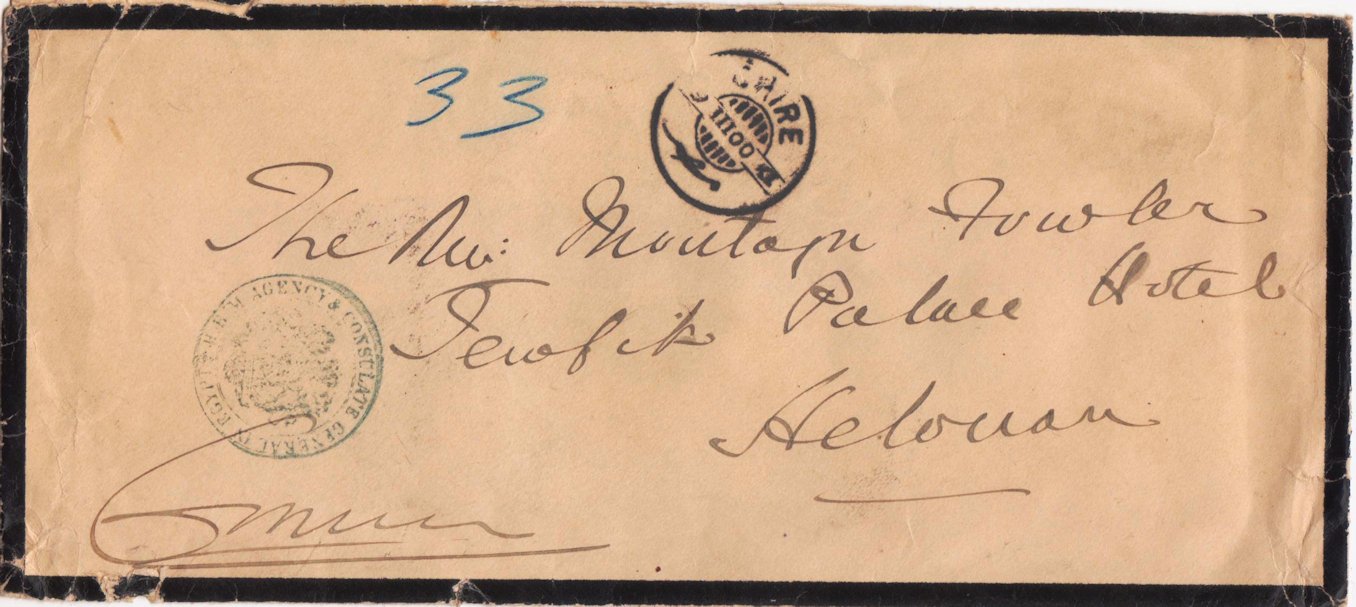 33
CAIRE
III 00
The Rev: Montagu Fowler
Tewfik Palace Hotel
Helouan
H.B.M. AGENCY & CONSULATE GENERAL IN EGYPT
Cromer